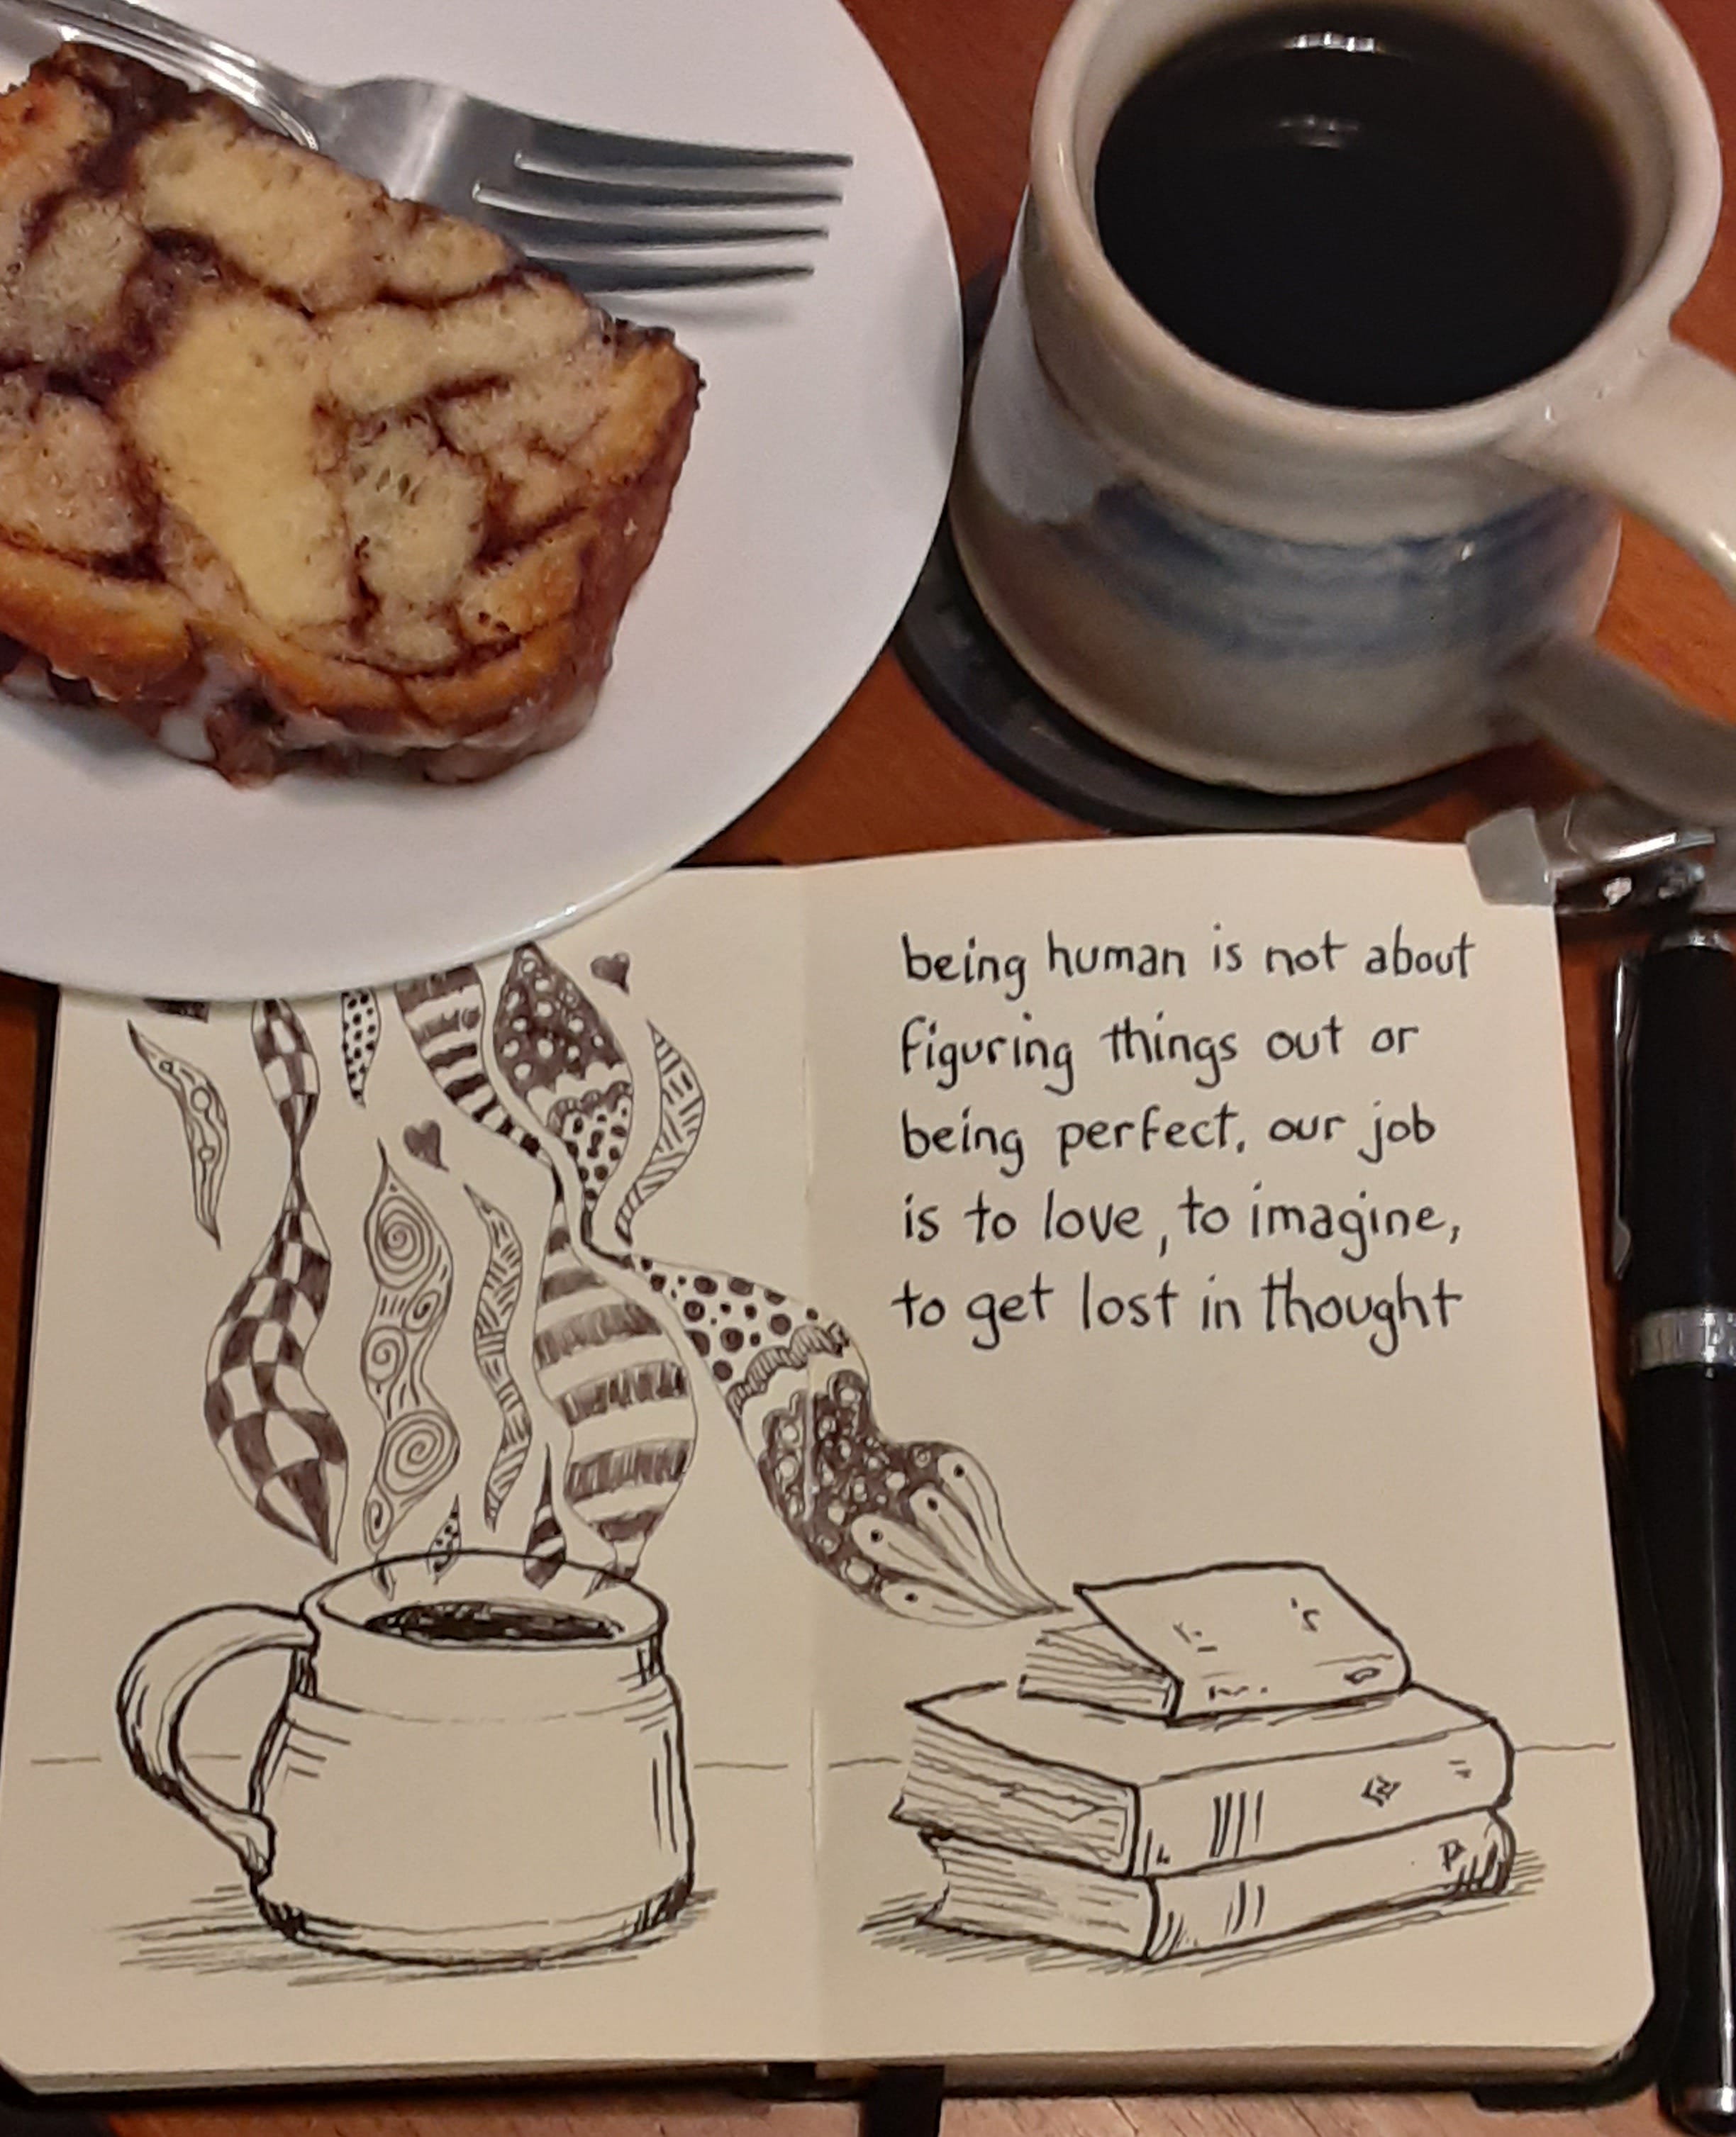 being human is not about
figuring things out or
being perfect, our job
is to love, to imagine,
to get lost in thought